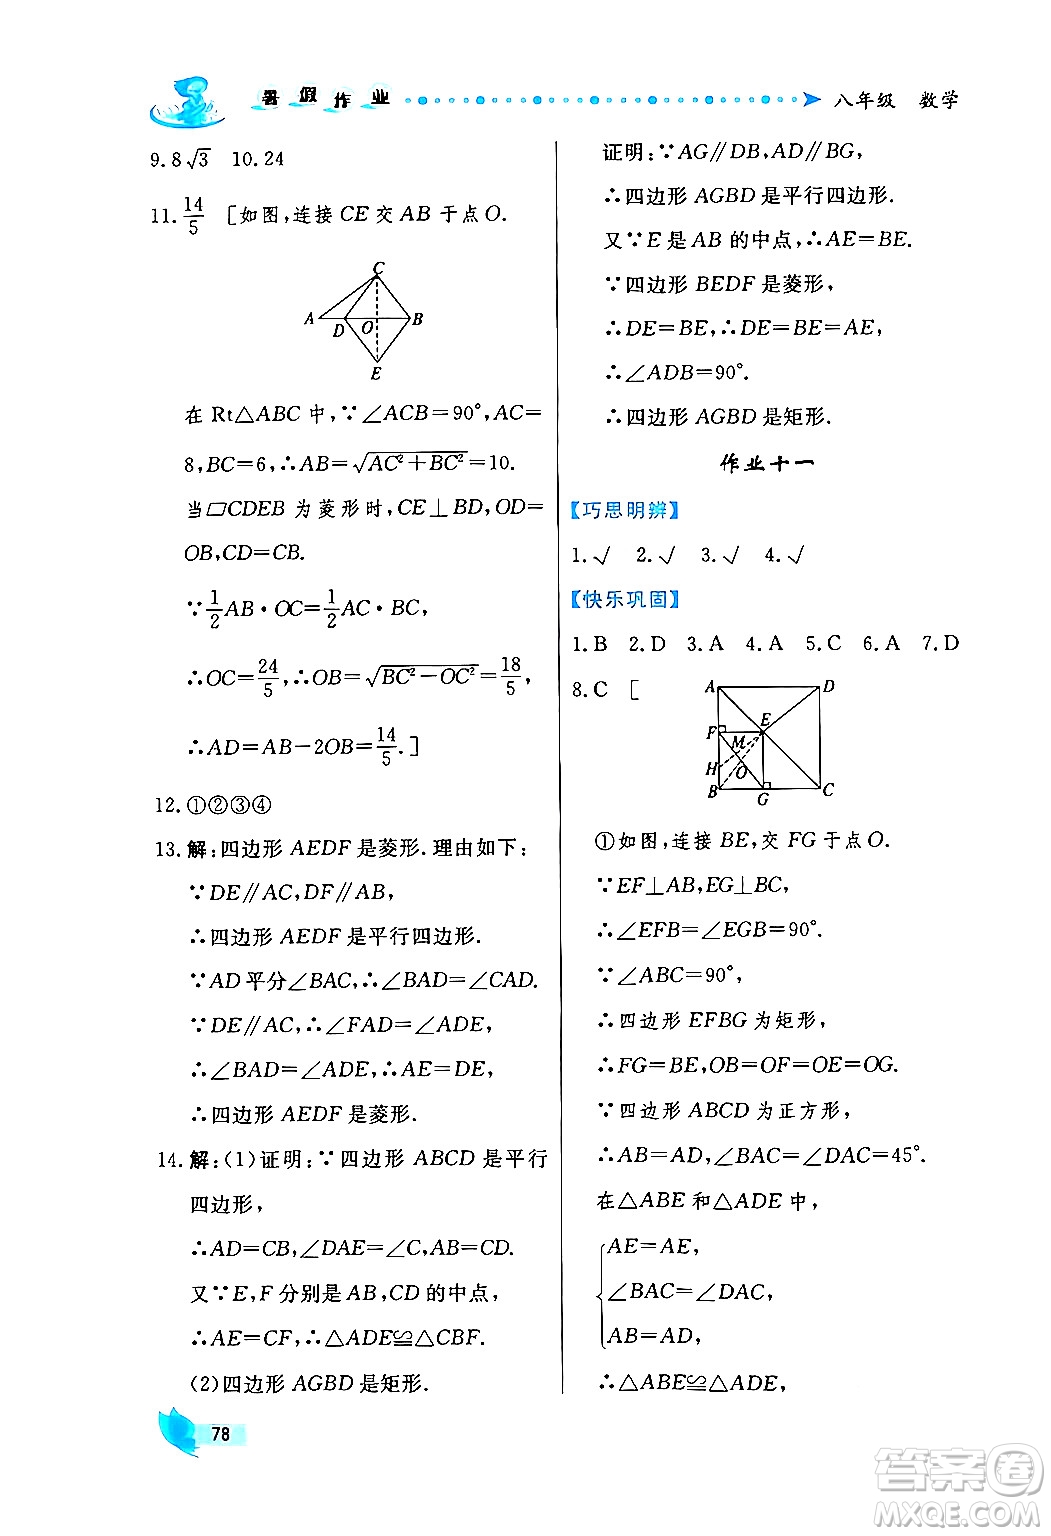 暑假作业
八年级 数学
9.8√3 10.24
11.14/5 [如图,连接CE交AB于点O.
C
A D O B
E
在Rt△ABC中,∵∠ACB=90°,AC=
8,BC=6,∴AB=√(AC²+BC²)=10.
当▱CDEB为菱形时,CE⊥BD,OD=
OB,CD=CB.
∵1/2AB·OC=1/2AC·BC,
∴OC=24/5,∴OB=√(BC²-OC²)=18/5,
∴AD=AB-2OB=14/5.]
12.①②③④
13.解:四边形AEDF是菱形.理由如下:
∵DE∥AC,DF∥AB,
∴四边形AEDF是平行四边形.
∵AD平分∠BAC,∴∠BAD=∠CAD.
∵DE∥AC,∴∠FAD=∠ADE,
∴∠BAD=∠ADE,∴AE=DE,
∴四边形AEDF是菱形.
14.解:(1)证明:∵四边形ABCD是平行
四边形,
∴AD=CB,∠DAE=∠C,AB=CD.
又∵E,F分别是AB,CD的中点,
∴AE=CF,∴△ADE≌△CBF.
(2)四边形AGBD是矩形.
证明:∵AG∥DB,AD∥BG,
∴四边形AGBD是平行四边形.
又∵E是AB的中点,∴AE=BE.
∵四边形BEDF是菱形,
∴DE=BE,∴DE=BE=AE,
∴∠ADB=90°.
∴四边形AGBD是矩形.
作业十一
【巧思明辨】
1.√ 2.√ 3.√ 4.√
【快乐巩固】
1.B 2.D 3.A 4.A 5.C 6.A 7.D
8.C [
A D
F E
M
H O
B G C
①如图,连接BE,交FG于点O.
∵EF⊥AB,EG⊥BC,
∴∠EFB=∠EGB=90°.
∵∠ABC=90°,
∴四边形EFBG为矩形,
∴FG=BE,OB=OF=OE=OG.
∵四边形ABCD为正方形,
∴AB=AD,∠BAC=∠DAC=45°.
在△ABE和△ADE中,
AE=AE,
∠BAC=∠DAC,
AB=AD,
∴△ABE≌△ADE,
78
答案圈
MXQE.COM